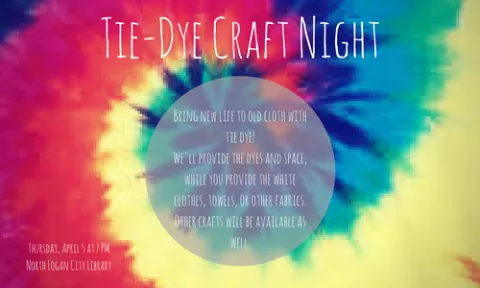 Tie-Dye Craft Night
Bring new life to old cloth with
tie dye!
We'll provide the dyes and space,
while you provide the white
clothes, towels, or other fabrics.
Other crafts will be available as
well.
Thursday, April 5 at 7 PM
North Logan City Library